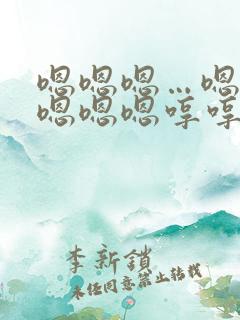 嗯嗯嗯…嗯
嗯嗯嗯哼哼
李新鎖
未經同意禁止轉載